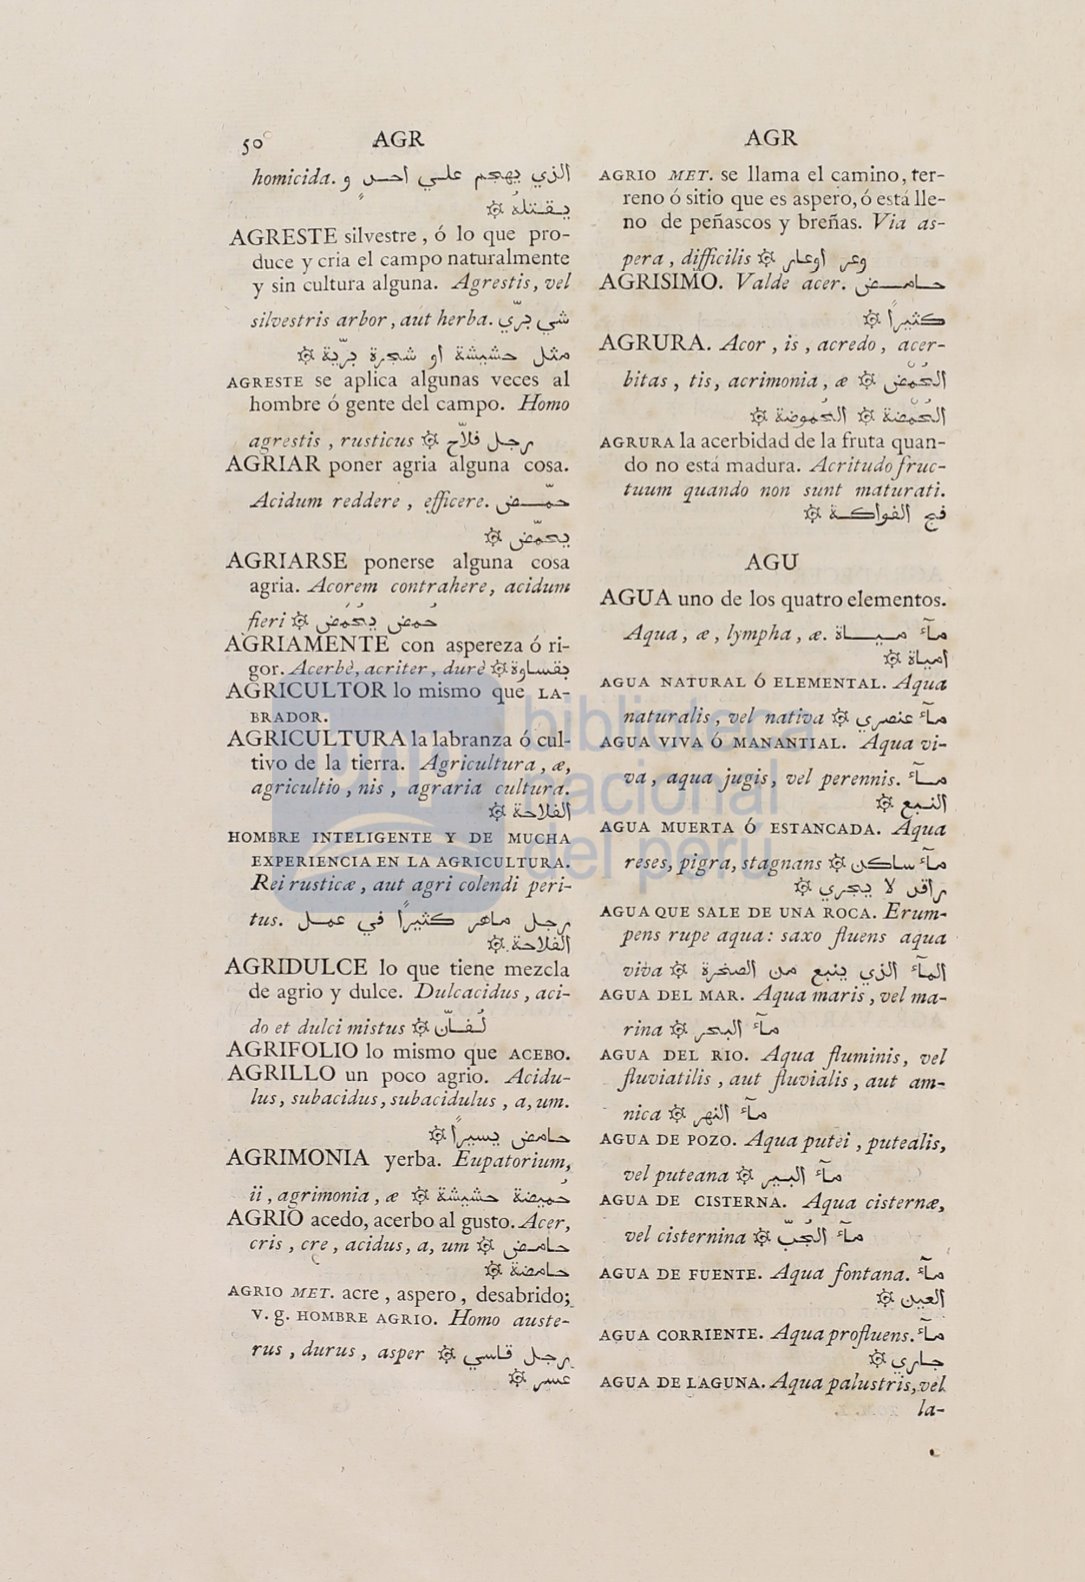 50 AGR
homicida. الذي يهجم علي احدٍ و
يقتلهُ ۞
AGRESTE silvestre, ó lo que pro-
duce y cria el campo naturalmente
y sin cultura alguna. Agrestis, vel
silvestris arbor, aut herba. شي برّي
مثل حشيشة او شجرة برّية ۞
AGRESTE se aplica algunas veces al
hombre ó gente del campo. Homo
agrestis, rusticus ۞ رجل فلّاح
AGRIAR poner agria alguna cosa.
Acidum reddere, efficere. حمّض
يحمّض ۞
AGRIARSE ponerse alguna cosa
agria. Acorem contrahere, acidum
fieri ۞ حمُض يَحمُض
AGRIAMENTE con aspereza ó ri-
gor. Acerbè, acriter, durè ۞ بقساوة
AGRICULTOR lo mismo que LA-
BRADOR.
AGRICULTURA la labranza ó cul-
tivo de la tierra. Agricultura, æ,
agricultio, nis, agraria cultura.
الفلاحة ۞
HOMBRE INTELIGENTE Y DE MUCHA
EXPERIENCIA EN LA AGRICULTURA.
Rei rusticæ, aut agri colendi peri-
tus. رجل ماهر كثيراً في عمل
الفلاحة ۞
AGRIDULCE lo que tiene mezcla
de agrio y dulce. Dulcacidus, aci-
do et dulci mistus ۞ لُفّان
AGRIFOLIO lo mismo que ACEBO.
AGRILLO un poco agrio. Acidu-
lus, subacidus, subacidulus, a, um.
حامض يسيراً ۞
AGRIMONIA yerba. Eupatorium,
ii, agrimonia, æ ۞ حُميضة حشيشة
AGRIO acedo, acerbo al gusto. Acer,
cris, cre, acidus, a, um ۞ حامض
حامضة ۞
AGRIO MET. acre, aspero, desabrido;
v. g. HOMBRE AGRIO. Homo auste-
rus, durus, asper ۞ رجل قاسي
عسر ۞
AGR
AGRIO MET. se llama el camino, ter-
reno ó sitio que es aspero, ó está lle-
no de peñascos y breñas. Via as-
pera, difficilis ۞ وعر أوعار
AGRISIMO. Valde acer. حامض
كثيراً ۞
AGRURA. Acor, is, acredo, acer-
bitas, tis, acrimonia, æ ۞ الحُمْض
الحُمْضة ۞ الحُموضة ۞
AGRURA la acerbidad de la fruta quan-
do no está madura. Acritudo fruc-
tuum quando non sunt maturati.
فج الفواكة ۞
AGU
AGUA uno de los quatro elementos.
Aqua, æ, lympha, æ. مآء مياة
أمياة ۞
AGUA NATURAL Ó ELEMENTAL. Aqua
naturalis, vel nativa ۞ مآء عنصري
AGUA VIVA Ó MANANTIAL. Aqua vi-
va, aqua jugis, vel perennis. مآء
النبع ۞
AGUA MUERTA Ó ESTANCADA. Aqua
reses, pigra, stagnans ۞ مآء ساكن
راقد لا يجري ۞
AGUA QUE SALE DE UNA ROCA. Erum-
pens rupe aqua: saxo fluens aqua
viva ۞ المآء الذي ينبع من الصخرة
AGUA DEL MAR. Aqua maris, vel ma-
rina ۞ مآء البحر
AGUA DEL RIO. Aqua fluminis, vel
fluviatilis, aut fluvialis, aut am-
nica ۞ مآء النهر
AGUA DE POZO. Aqua putei, putealis,
vel puteana ۞ مآء البير
AGUA DE CISTERNA. Aqua cisternæ,
vel cisternina ۞ مآء الجُبّ
AGUA DE FUENTE. Aqua fontana. مآء
العين ۞
AGUA CORRIENTE. Aqua profluens. مآء
جاري ۞
AGUA DE LAGUNA. Aqua palustris, vel
la-
biblioteca
nacional
del perú